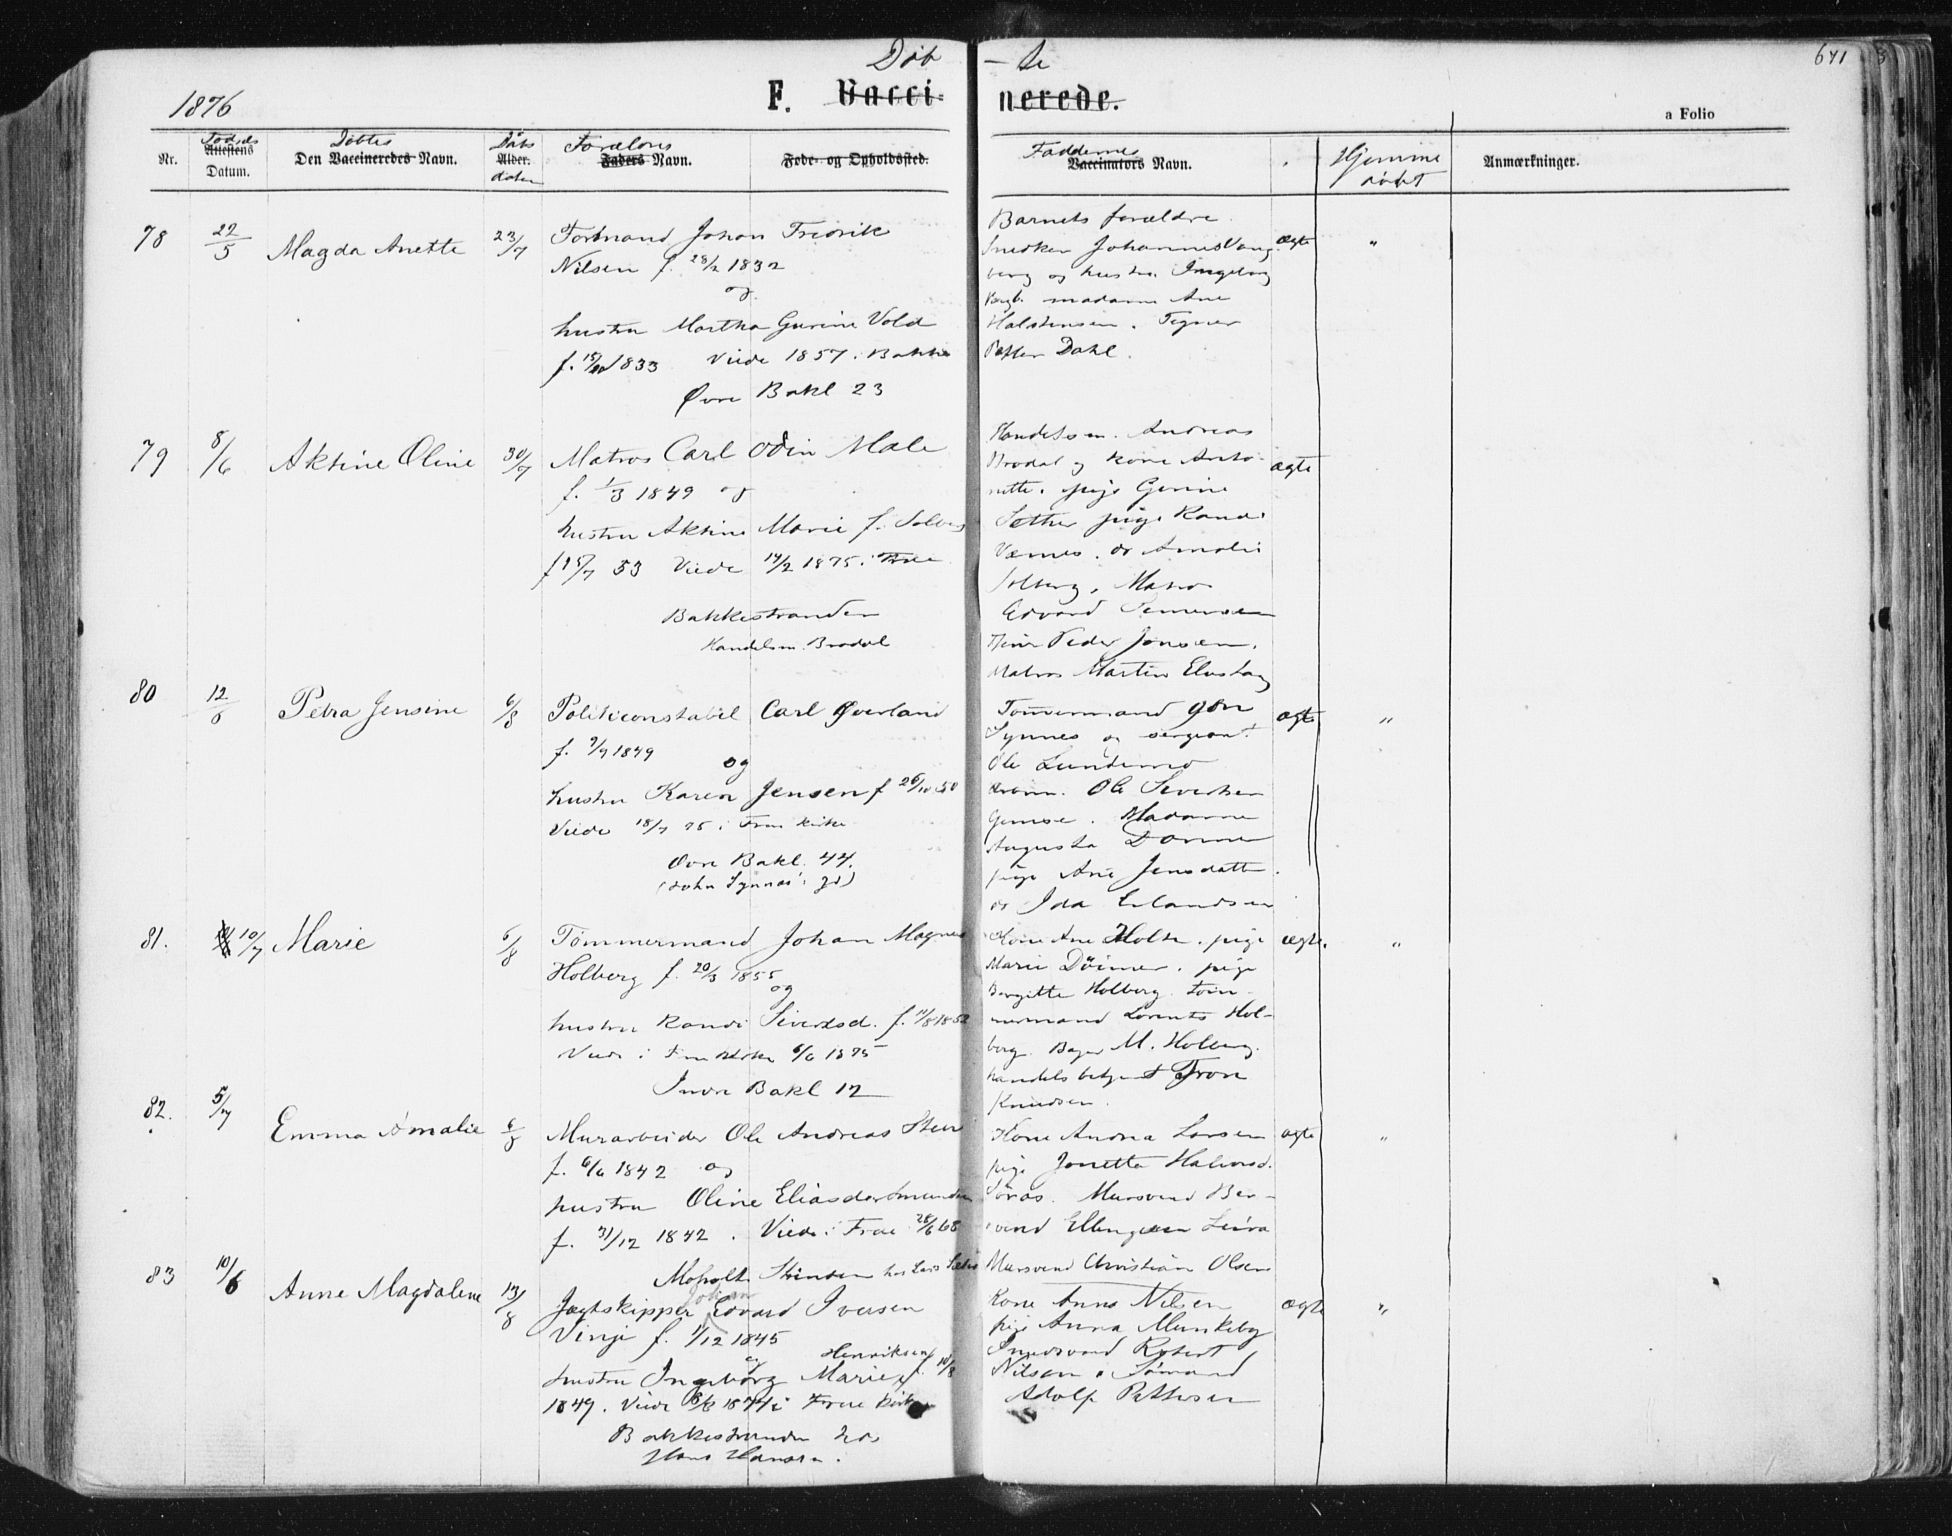 Døb - te
641
1876
F. Vaccinerede.
a Folio
Nr.
Fødsels
Attestens
Datum.
Døbtes
Den Vaccineredes Navn.
Dåbs
Alder.
datum
Forældres
Faders Navn.
Føde- og Opholdssted.
Faddernes
Vaccinators Navn.
Hjemme
døbt
Anmærkninger.
78 22/5 Magda Anette 23/7
Johan Fredrik
Nilsen f. 28/2 1832
og
hustru Martha Gurine Vold
f. 1833 Viede 1857. Bakke
Øvre Bakl 23
Barnets forældre
Snedker Johannes
berg og hustru Ingeborg
madame Ane
Halstensen. Tegner
Petter Dahl.
ægte "
79 8/6 Aktine Oline 30/7
Matros Carl Odin Male
f. 1/3 1849 og
hustru Aktine Marie f. Solberg
53 Viede 14/2 1875 i Frue
Bakkestranden
Handelsm. Brodal
Handelsm. Andreas
Brodal og kone Anto-
nette. pige Gurine
Sæther pige Randi
Værnes. do Amalie
Solberg, Matros
Edvard
Peder Jonsen.
Matros Martin
ægte
80 12/6 Petra Jensine 6/8
Politiconstabel Carl Øverland
f. 7/9 1849
og
hustru Karen Jensen f 26/10 50
Viede 18/7 75 i Frue kirke
Øvre Bakl. 44.
(John Synnes' gd)
Tømmermand John
Synnes og sergeant
Ole Lundemo
Ole Sivertsen
Madame
Augusta
pige Ane Jensdatter.
do Ida Erlandsen
ægte "
81. 10/7 Marie 6/8
Tømmermand Johan Magnus
Holberg f. 20/3 1855
og
hustru Randi Sivertsd. f. 11/8 1852
Viede i Frue kirke 6/6 1875
Indre Bakl 12
Kone Ane Holte. pige
Marie. pige
Bergitte Holberg. tøm-
mermand Lorents Hol-
berg. Bager M. Holberg.
handelsbetjent Tron
Knudsen.
ægte. "
82. 5/7 Emma Amalie 6/8
Murarbeider Ole Andreas
f. 6/6 1842 og
hustru Oline Eliasdr
f. 31/12 1842. Viede i Frue 28/6 68
Moholt Stensen hos Lars
Kone Andrea Larsen
pige Jonetta Halvorsd.
Mursvend Ber-
Ellingsen Leira
Mursvend Christian Olsen
ægte "
83 10/6 Anne Magdalene 13/8
Johan
Jægtskipper Edvard Iversen
Vinje f. 1/12 1845
og Henriksen
hustru Ingeborg Marie f. 10/8
1849. Viede i Frue kirke
Bakkestranden hos
Hans Hansen.
Kone Anna Nilsen
pige Anna Munkeby
Robert
Nilsen. Sømand
Adolf Pettersen
ægte "